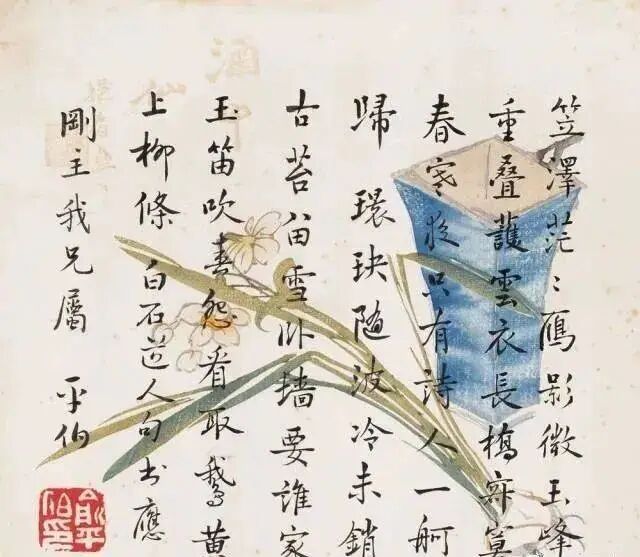 笠澤茫〻鴈影微玉峰
重叠護雲衣長橋寂寞
春寒夜只有詩人一舸
歸環玦隨波冷未銷
古苔畄雪卧墙要誰家
玉笛吹春怨看取鵞黄
上柳條 白石道人句书應
剛主我兄屬 平伯
俞平伯印
酒中
仙